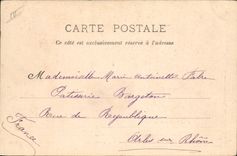 CARTE POSTALE
Ce côté est exclusivement réservé à l'adresse
Mademoiselle Marie Antoinette Fabre
Patisserie Bargeton
Rue de République
Arles sur Rhône
France